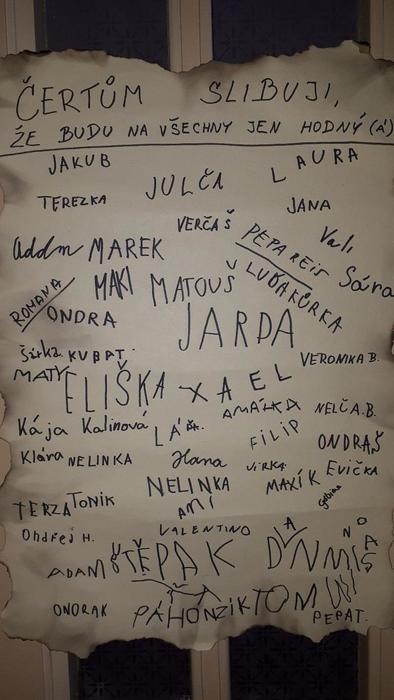 ČERTŮM SLIBUJI,
ŽE BUDU NA VŠECHNY JEN HODNÝ(Á)
JAKUB
LAURA
TEREZKA
JULČA
JANA
VERČA Š
Addm MAREK
PEPA REIS
Vali
MAKI MATOUŠ
LUBA KŮRKA
Sára
ROMANA
ONDRA
JARDA
Šárka KUBAT.
VERONIKA B.
MATY ELIŠKA
XAEL
AMÁLKA
NELČA.B.
Kája Kalinová
FILIP
ONDRAŠ
Klára NELINKA
Hana
JIRKA
MAXÍK
EVIČKA
NELINKA
TERZA TONIK
AMI
Ondřej H.
VALENTINO
ADAM
ŠTĚPAK
ONDRAK
PÁHONZIK TOM
PEPAT.